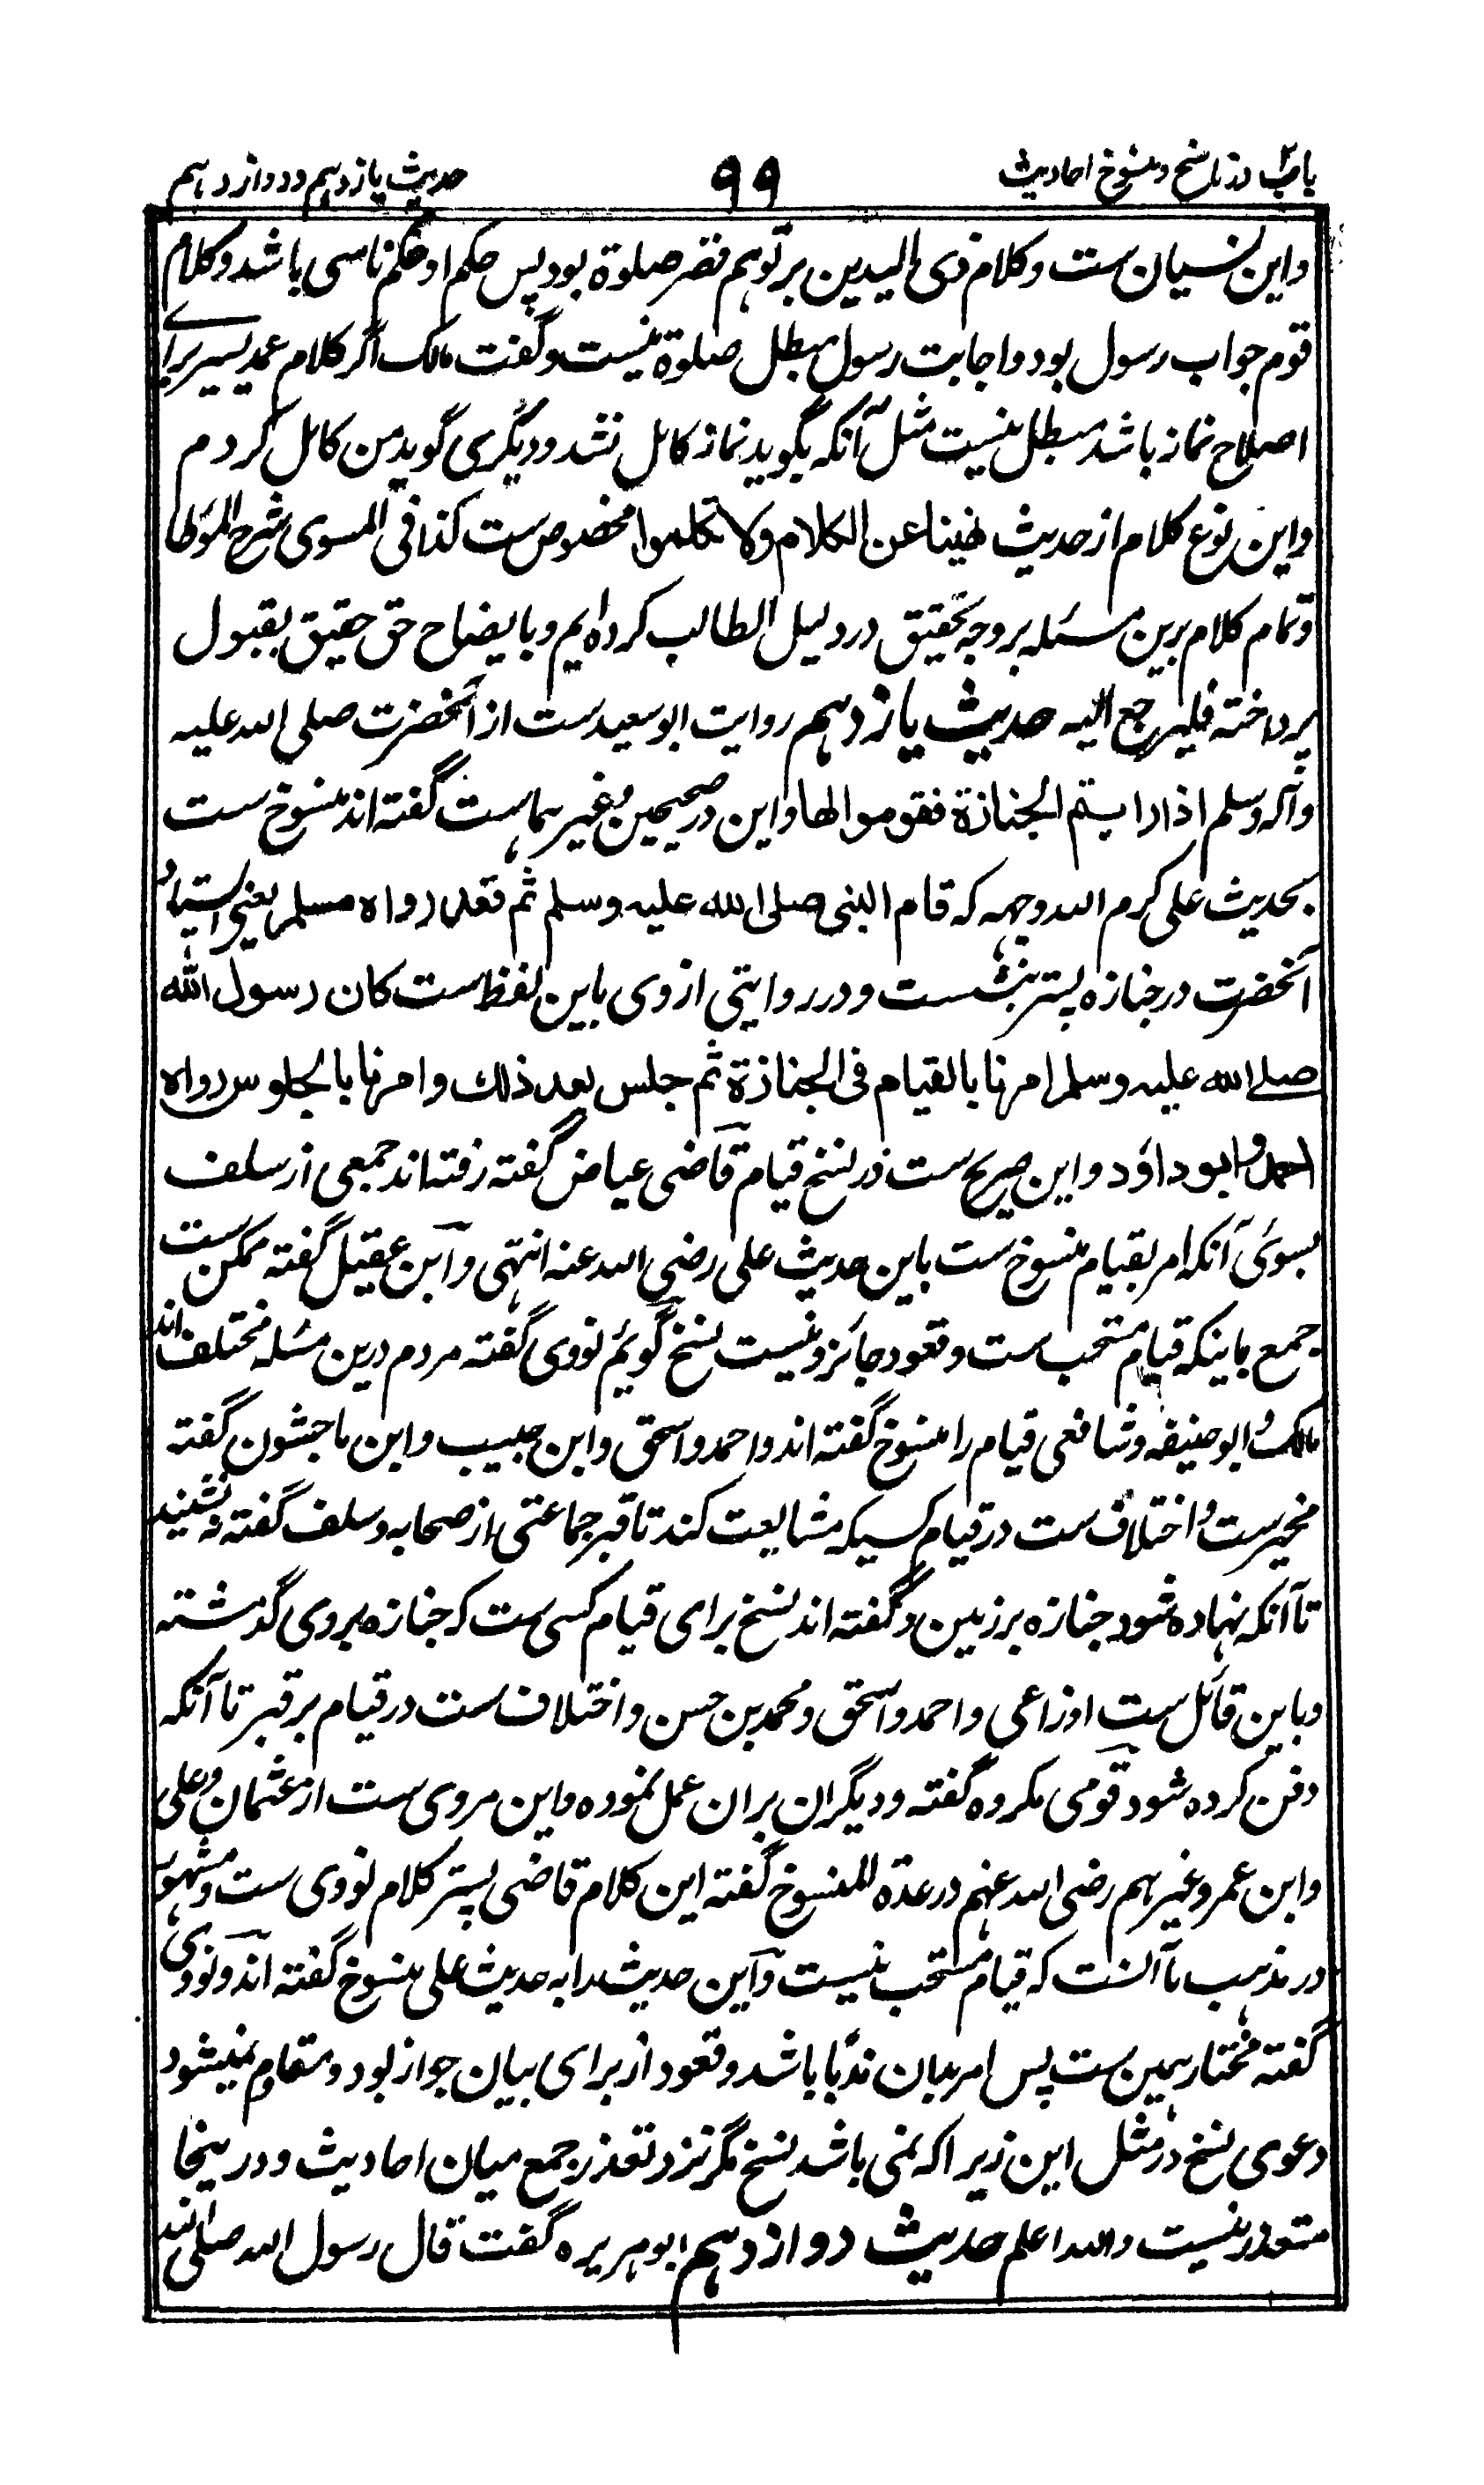 باب ٢ در ناسخ و منسوخ احادیث
۹۹
حدیث یازدهم و دوازدهم
و این نسیان ست و کلام ذی الیدین بر توهم قصر صلوة بود پس حکم او حکم ناسی باشد و کلام
قوم جواب رسول بود و اجابت رسول مبطل صلوة نیست و گفت مالک اگر کلام عمد یسیر برای
اصلاح نماز باشد مبطل نیست مثل آنکه بگوید نماز کامل نشد و دیگری گوید من کامل کردم
و این نوع کلام از حدیث نهینا عن الکلام و لا تکلموا مخصوص ست کذا فی المسوی شرح الموطا
و تمام کلام برین مسئله بر وجه تحقیق در دلیل الطالب کرده ایم و بایضاح حق حقیق بقبول
پرداخته فلیرجع الیه حدیث یازدهم روایت ابو سعید ست از آنحضرت صلی الله علیه
و آله وسلم اذا رایتم الجنازة فقوموا لها و این در صحیحین و غیرهما ست گفته اند منسوخ ست
بحدیث علی کرم الله وجهه که قام النبی صلی الله علیه وسلم ثم قعد رواه مسلم یعنی استاد
آنحضرت در جنازه پستر بنشست و در روایتی از وی باین لفظ ست کان رسول الله
صلی الله علیه وسلم امرنا بالقیام فی الجنازة ثم جلس بعد ذلک و امرنا بالجلوس رواه
احمد و ابو داود و این صریح ست در نسخ قیام قاضی عیاض گفته رفته اند جمعی از سلف
بسوی آنکه امر بقیام منسوخ ست باین حدیث علی رضی الله عنه انتهی و ابن عقیل گفته ممکن ست
جمع باینکه قیام مستحب ست و قعود جائز و نیست نسخ گویم نووی گفته مردم درین مسئله مختلف اند
مالک و ابو حنیفه و شافعی قیام را منسوخ گفته اند و احمد و اسحق و ابن حبیب و ابن ماجشون گفته
مخیر ست و اختلاف ست در قیام کسیکه مشایعت کند تا قبر جماعتی از صحابه و سلف گفته نه نشیند
تا آنکه نهاده شود جنازه بر زمین و گفته اند نسخ برای قیام کسی ست که جنازه بروی گذشته
و باین قائل ست اوزاعی و احمد و اسحق و محمد بن حسن و اختلاف ست در قیام بر قبر تا آنکه
دفن کرده شود قومی مکروه گفته و دیگران بران عمل نموده و این مروی ست از عثمان و علی
و ابن عمر و غیرهم رضی الله عنهم در عدة المنسوخ گفته این کلام قاضی پستر کلام نووی ست و مشهور
در مذهب ما آنست که قیام مستحب نیست و این حدیث را به حدیث علی منسوخ گفته اند و نووی
گفته مختار همین ست پس امر بدان ندبا باشد و قعود از برای بیان جواز بود و مقاوم نمیشود
دعوی نسخ در مثل این زیرا که نمی باشد نسخ مگر نزد تعذر جمع میان احادیث و درینجا
متعذر نیست والله اعلم حدیث دوازدهم ابو هریره گفت قال رسول الله صلی الله